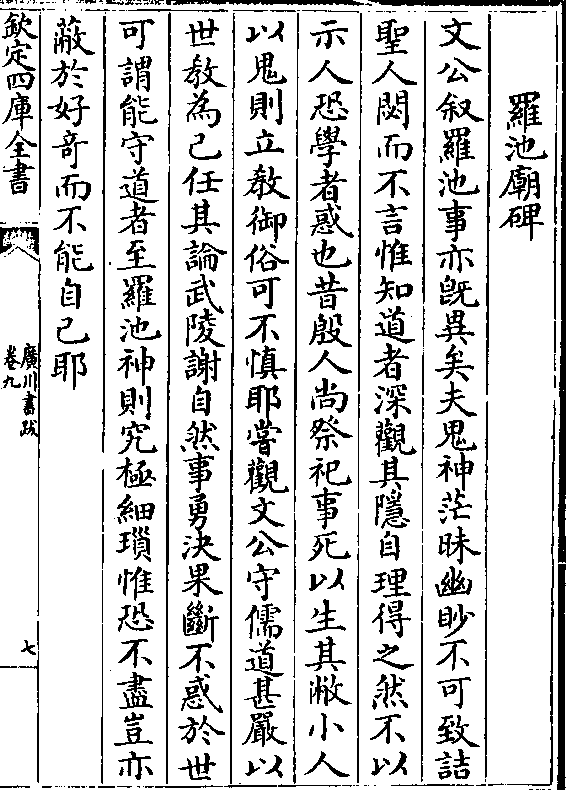 羅池廟碑
文公叙羅池事亦旣異矣夫鬼神茫昧幽眇不可致詰
聖人閟而不言惟知道者深觀其隱自理得之然不以
示人恐學者惑也昔殷人尚祭祀事死以生其敝小人
以鬼則立教御俗可不慎耶嘗觀文公守儒道甚嚴以
世教為己任其論武陵謝自然事勇決果斷不惑於世
可謂能守道者至羅池神則究極細瑣惟恐不盡豈亦
蔽於好奇而不能自已耶
欽定四庫全書
廣川書跋
卷九
七